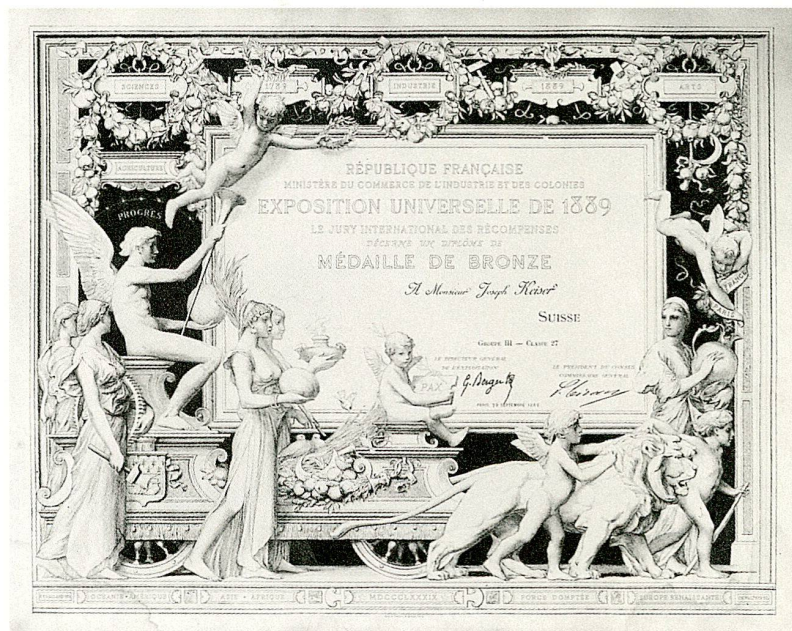 SCIENCES
1789
INDUSTRIE
1889
ARTS
AGRICULTURE
PROGRÈS
RÉPUBLIQUE FRANÇAISE
MINISTÈRE DU COMMERCE DE L'INDUSTRIE ET DES COLONIES
EXPOSITION UNIVERSELLE DE 1889
LE JURY INTERNATIONAL DES RÉCOMPENSES
DÉCERNE UN DIPLÔME DE
MÉDAILLE DE BRONZE
A Monsieur Joseph Keiser
SUISSE
GROUPE III — CLASSE 27
FRANCE
PARIS
LE DIRECTEUR GÉNÉRAL
DE L'EXPLOITATION
LE PRÉSIDENT DU CONSEIL
COMMISSAIRE GÉNÉRAL
PAX
G. Berger
PARIS, 29 SEPTEMBRE 1889
OCÉANIE-AMÉRIQUE
ASIE - AFRIQUE
MDCCCLXXXIX
FORCE DOMPTÉE